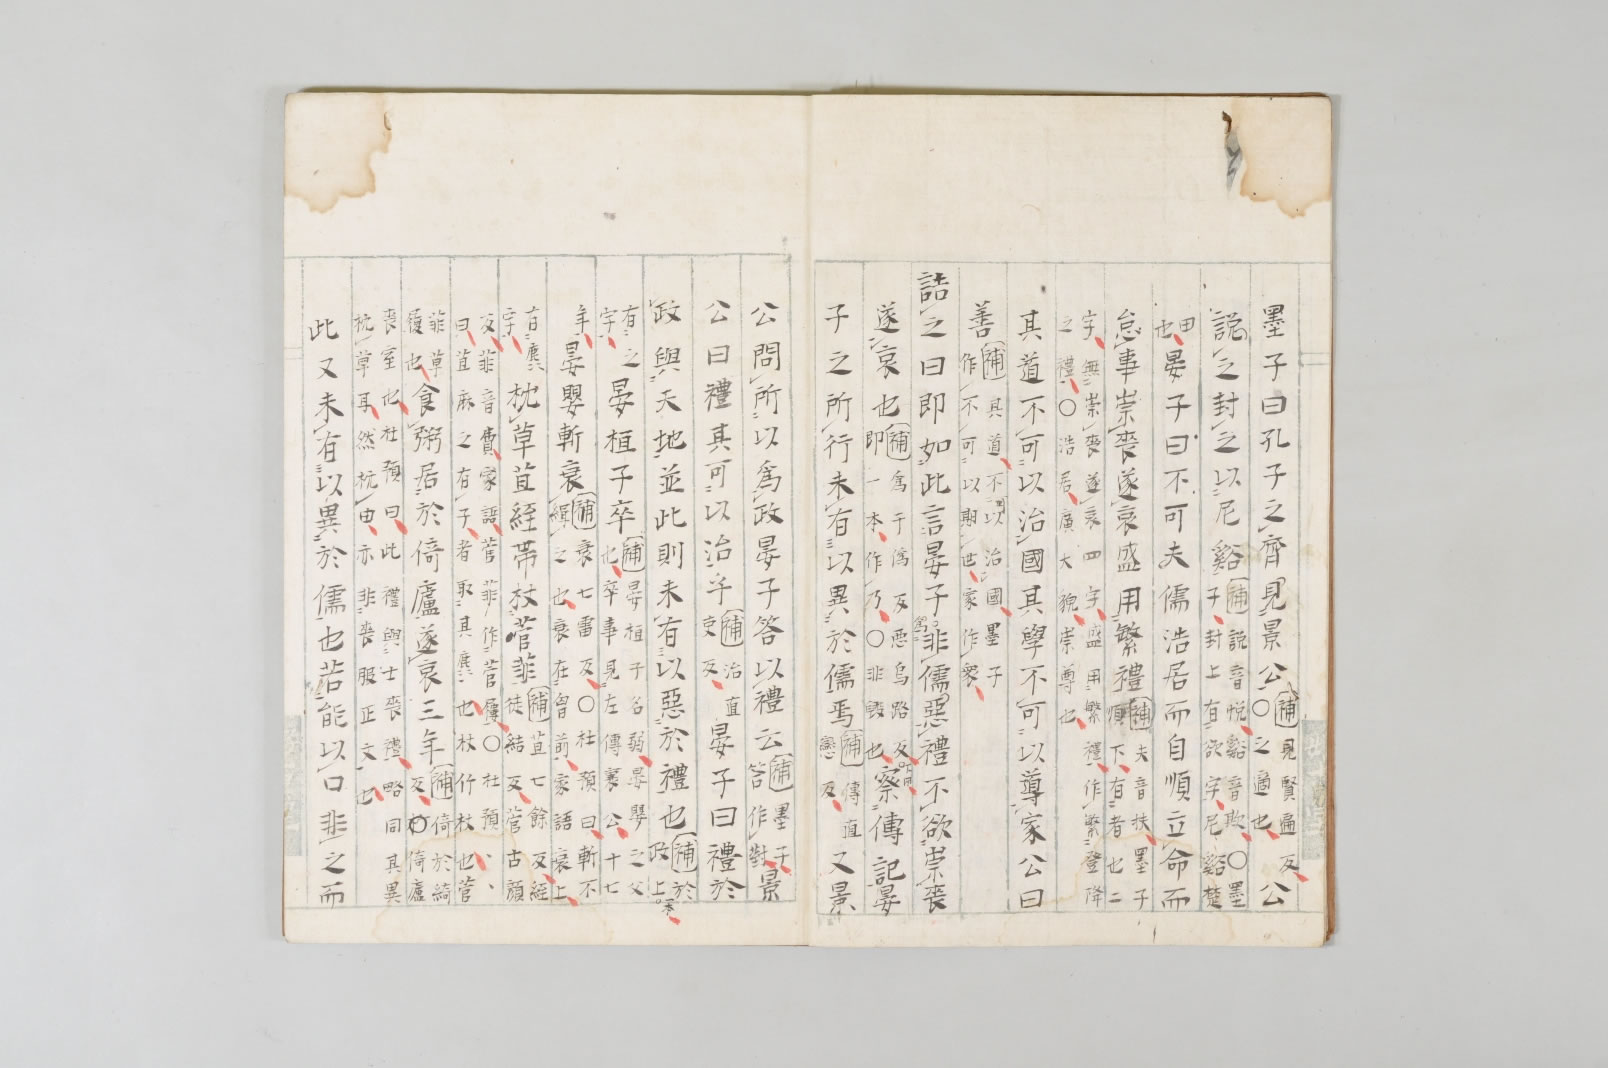 墨子曰孔子之齊見景公〇補見賢遍反之適也公
説之封之以尼谿補説音悦谿音欺〇墨子封上有欲字尼谿楚
田也晏子曰不可夫儒浩居而自順立命而
怠事崇喪遂哀盛用繁禮補夫音扶墨子順下有者也二
字無崇喪遂哀四字盛用繁禮作繁登降之禮〇浩居廣大貌崇尊也
其道不可以治國其學不可以導家公曰
善補其道不可以治國墨子作不可以期世家作衆
詰之曰即如此言晏子爲非儒惡禮不欲崇喪
遂哀也補爲于僞反惡烏路反即一本作乃〇非也察傳記晏
子之所行未有以異於儒焉補傳直戀反又景
公問所以爲政晏子答以禮云補墨子答作對景
公曰禮其可以治乎補治直吏反晏子曰禮於
政與天地並此則未有以惡於禮也補於政上
有之字晏桓子卒補晏桓子名弱晏嬰之父也卒事見左傳襄公十七
年晏嬰斬衰補衰七雷反〇杜預曰斬不緝之也衰在胷前家語衰上
有麤字枕草苴絰帶杖菅菲補苴七餘反絰徒結反菅古顔
反菲音費家語菅菲作菅屨〇杜預曰苴麻之有子者取其麤也杖竹杖也菅
菲草屨也食粥居於倚廬遂哀三年補倚於綺反〇倚廬
喪室也杜預曰此禮與士喪禮略同其異枕草耳然枕凷亦非喪服正文也
此又未有以異於儒也若能以口非之而